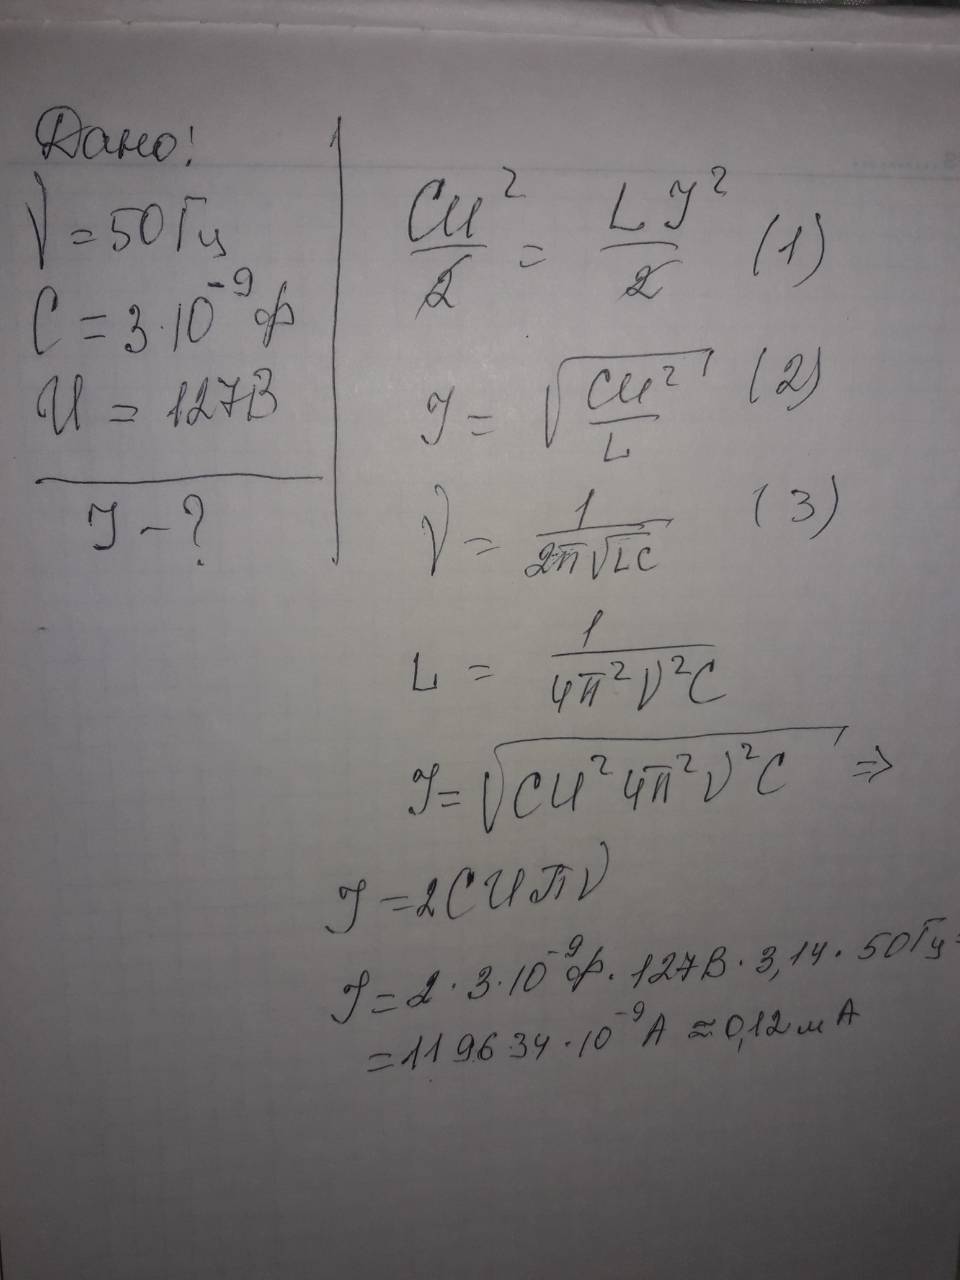 Дано:
ν = 50 Гц
C = 3·10⁻⁹ ф
U = 127 В
I - ?
CU²/2 = LI²/2 (1)
I = √(CU²/L) (2)
ν = 1/(2π√LC) (3)
L = 1/(4π²ν²C)
I = √(CU²4π²ν²C) ⇒
I = 2CUπν
I = 2·3·10⁻⁹ф·127В·3,14·50Гц=
= 119634·10⁻⁹A ≈ 0,12мА